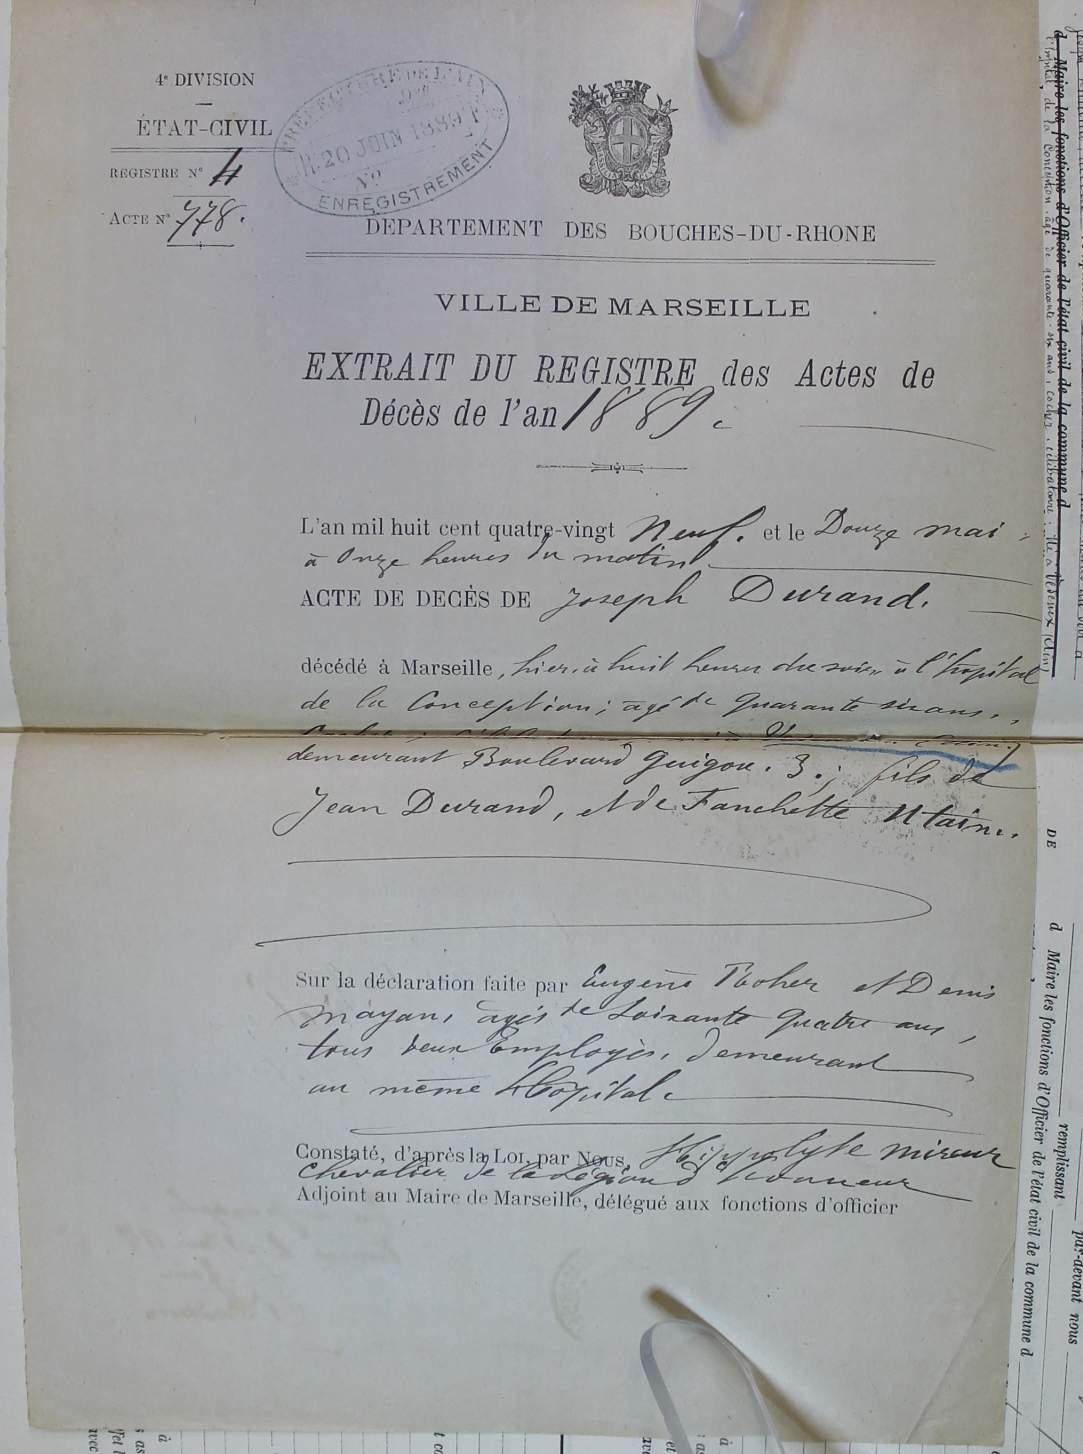 4e DIVISION
ÉTAT-CIVIL
REGISTRE N° 4
ACTE N° 778.
PREFECTURE DE L'AIN
20 JUIN 1889
N°
ENREGISTREMENT
DEPARTEMENT DES BOUCHES-DU-RHONE
VILLE DE MARSEILLE
EXTRAIT DU REGISTRE des Actes de
Décès de l'an 1889.
L'an mil huit cent quatre-vingt Neuf. et le Douze mai
à Onze heures du matin
ACTE DE DECÈS DE Joseph Durand.
décédé à Marseille, hier, à huit heures du soir, à l'hopital
de la Conception; agé de quarante six ans,
demeurant Boulevard Guigou. 3.; fils de
Jean Durand, et de Fanchette
Sur la déclaration faite par Eugène et Denis
Mayan, agés de Soixante quatre ans,
tous deux Employés, demeurant
au même Hôpital.
Constaté, d'après la Loi, par Nous, Hippolyte Mireur
Chevalier de la Légion d'Honneur
Adjoint au Maire de Marseille, délégué aux fonctions d'officier
d Maire les fonctions d'Officier de l'état civil de la commune d
l'hôpital de la Conception, âgé de quarante-six ans, cocher, célibataire,
DE
d Maire les fonctions d'Officier de l'état civil de la commune d
remplissant
par-devant nous